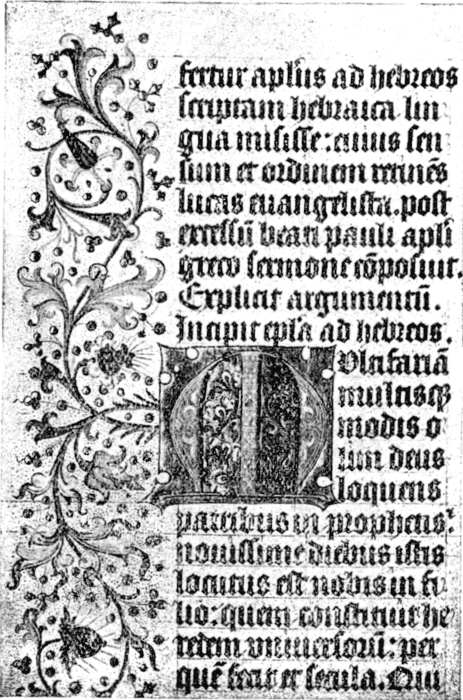 fertur aplūs ad hebreos
scriptam hebraica lin
gua misisse: cuius sen
sum et ordinem retinēs
lucas euangelista. post
excessū beati pauli apli
greco sermone cōposuit.
Explicit argumentū.
Incipit epl'a ad hebreos.
Multifariā
multisq3
modis o
lim deus
loquens
patribus in prophetis:
nouissime diebus istis
locutus est nobis in fi
lio: quem constituit he
redem vniuersorū: per
quē fecit et secula. Qui